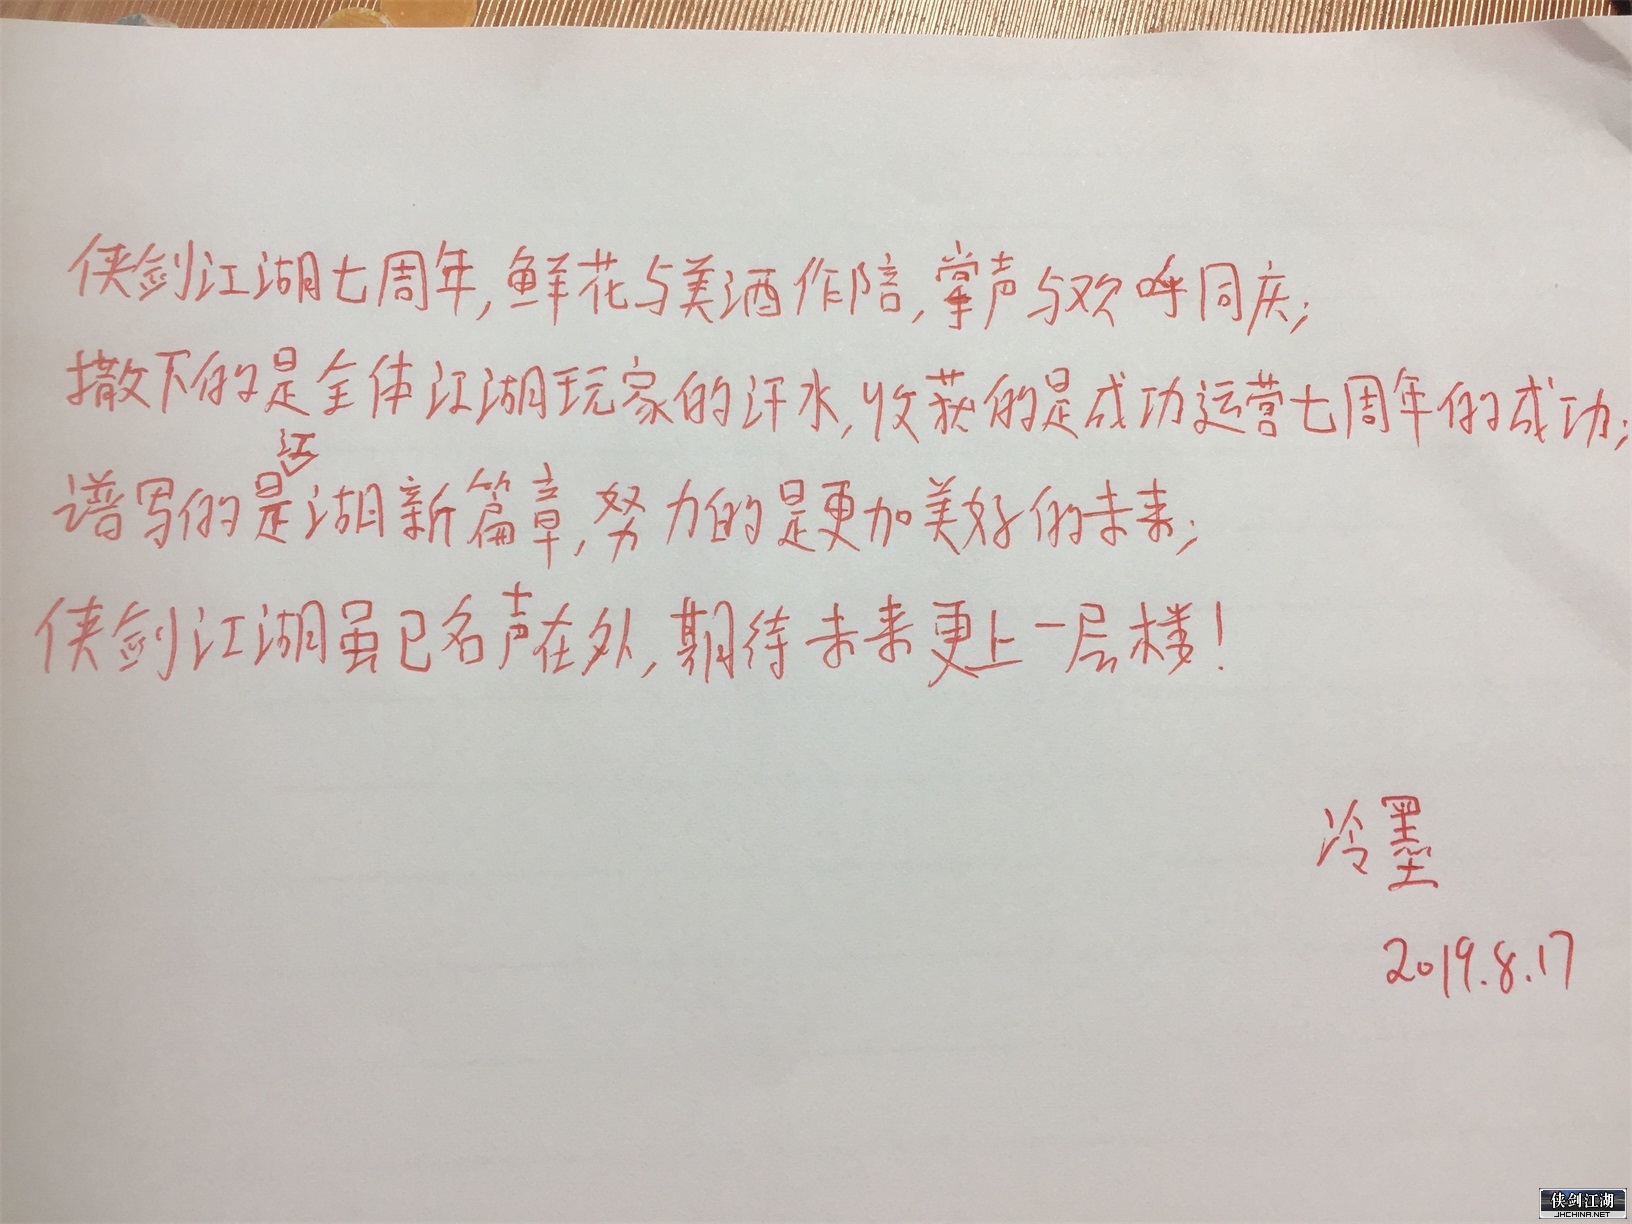 侠剑江湖七周年,鲜花与美酒作陪,掌声与欢呼同庆;
撒下的是全体江湖玩家的汗水,收获的是成功运营七周年的成功;
谱写的是江湖新篇章,努力的是更加美好的未来;
侠剑江湖虽已名声在外,期待未来更上一层楼!
冷墨
2019.8.17
侠剑江湖
JHCHINA.NET